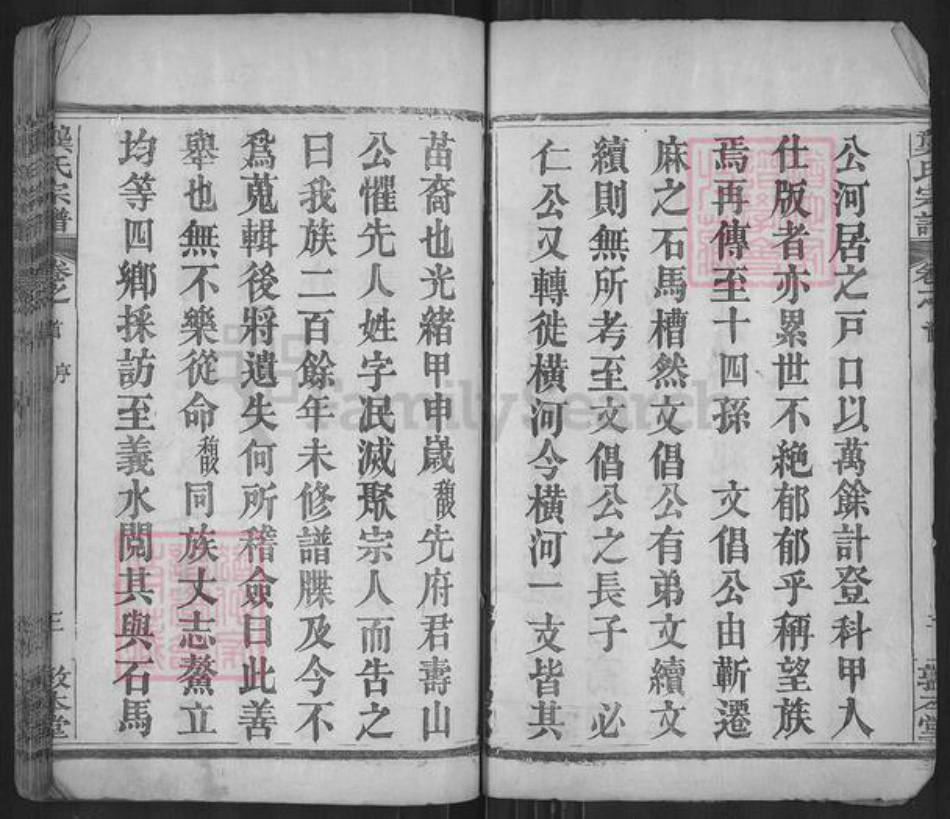 公河居之戸口以萬餘計登科甲入
仕版者亦累世不絶郁郁乎稱望族
焉再傳至十四孫 文倡公由蘄遷
麻之石馬槽然文倡公有弟文續文
續則無所考至文倡公之長子 必
仁公又轉徙横河今横河一支皆其
苗裔也光緒甲申歳馥先府君壽山
公懼先人姓字泯滅聚宗人而告之
曰我族二百餘年未修譜牒及今不
爲蒐輯後將遺失何所稽僉曰此善
舉也無不樂從命馥同族丈志鰲立
均等四鄉採訪至義水閲其與石馬
龔氏宗譜 卷之首 序 三 敦本堂
FamilySearch